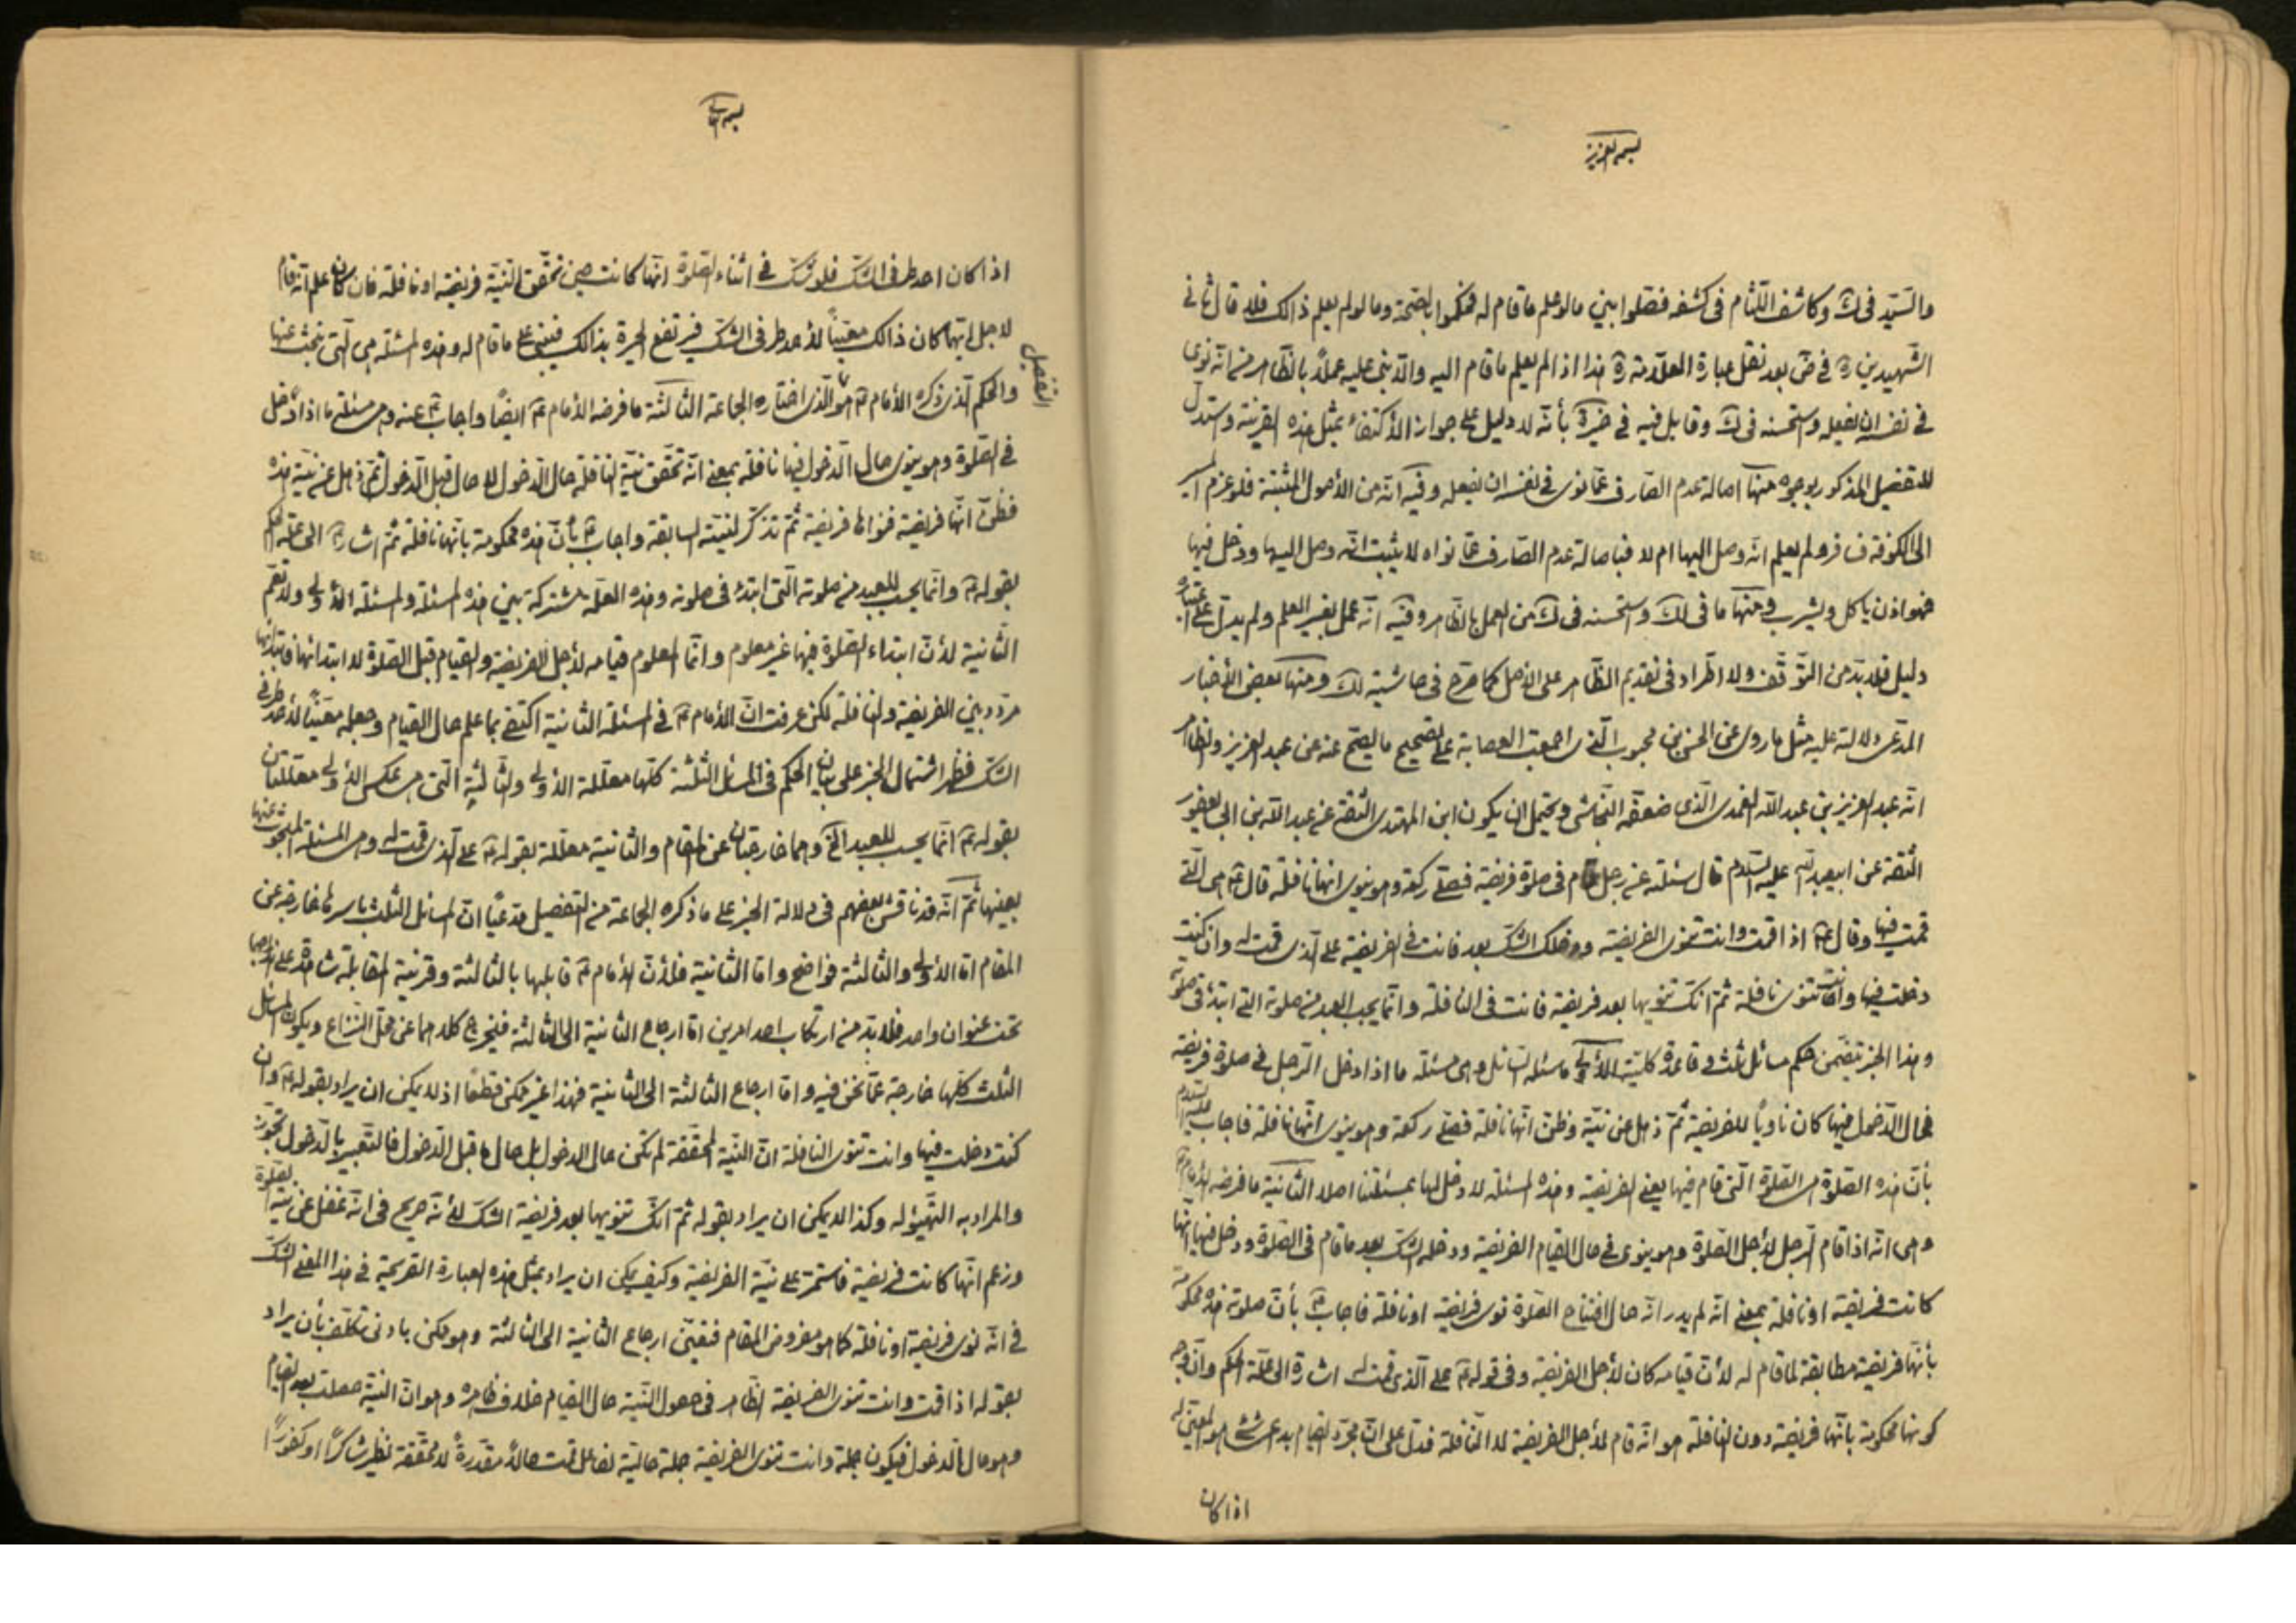 بسمه العزيز
والسيد فى ك وكاشف اللثام فى كشفه ففصلوا بين ما لو علم ما قام له فحكموا بالصحة وما لو لم يعلم ذالك فلا قال ثانى
الشهيدين ره فى ض بعد نقل عبارة العلامة ره هذا اذا لم يعلم ما قام اليه والا بنى عليه عملاً بالظاهر من انه نوى
فى نفسه ان يفعله واستحسنه فى ك وقابل فيه فى خيرة بأنه لا دليل على جواز الأكتفاء بمثل هذه القرينة واستدل
للتفصيل المذكور بوجوه منها اصالة عدم الصارف عما نوى فى نفسه ان يفعله وفيه انه من الأصول المثبتة فلو عزم
الى الكوفة فسافر ولم يعلم انه وصل اليها ام لا فباصالة عدم الصارف عما نواه لا يثبت انه وصل اليها ودخل فيها
فهو اذن يأكل ويشرب ومنها ما فى لك واستحسنه فى ك من العمل بالظاهر وفيه انه عمل بغير العلم ولم يدل على اعتباره
دليل فلا بد من التوقف ولا اطراد فى تقديم الظاهر على الاصل كما صرح فى حاشية لك ومنها بعض الأخبار
المدعى دلالته عليه مثل ما روى عن الحسن بن محبوب الذى اجمعت العصابة على تصحيح ما يصح عنه عن عبد العزيز والظاهر
انه عبد العزيز بن عبد الله العبدى الذى ضعفه النجاشى ويحتمل ان يكون ابن المهتدى الثقة عن عبد الله بن ابى يعفور
الثقة عن ابيعبد الله عليه السلام قال سئلته عن رجل قام فى صلوة فريضة فصلى ركعة وهو ينوى انها نافلة قال ع هى التى
قمت فيها وقال ع اذا قمت وانت تنوى الفريضة ودخلك الشك بعد فانت فى الفريضة على الذى قمت له وان كنت
دخلت فيها وانت تنوى نافلة ثم انك تنويها بعد فريضة فانت فى النافلة وانما يحسب للعبد من صلوته التى ابتدء فى صلوته
وهذا الخبر يتضمن حكم مسائل ثلث وقاعدة كلية الأولى ما سئله السائل وهى مسئلة ما اذا دخل الرجل فى صلوة فريضة
فحال الدخول فيها كان ناوياً للفريضة ثم ذهل عن نية وظن انها نافلة فصلى ركعة وهو ينوى انها نافلة فاجاب عليه السلام
بأن هذه الصلوة هى الصلوة التى قام فيها يعنى الفريضة وهذه المسئلة لا دخل لها بمسئلتنا اصلا الثانية ما فرضه الأمام ع
وهى انه اذا قام الرجل لأجل الصلوة وهو ينوى فى حال القيام الفريضة ودخله الشك بعد ما قام فى الصلوة ودخل فيها انها
كانت فريضة او نافلة بمعنى انه لم يدر انه حال افتتاح الصلوة نوى فريضة او نافلة فاجاب ع بأن صلوته هذه محكومة
بأنها فريضة مطابقة لما قام له لأن قيامه كان لأجل الفريضة وفى قوله ع على الذى قمت له اشارة الى علة الحكم وان وجه
كونها محكومة بانها فريضة دون النافلة هو انه قام لأجل الفريضة لا النافلة فدل على ان مجرد القيام بداعى شئ هو المعين له
اذا كان
اذا كان احد طرفى الشك فلو شك فى اثناء الصلوة انها كانت حين تحقق النية فريضة او نافلة فان كان علم انه قام
لاجل ايهما كان ذالك معيناً لأحد طرفى الشك فيرتفع الحيرة بذالك فيبنى على ما قام له وهذه المسئلة هى التى نبحث عنها
والحكم الذى ذكره الأمام ع هو الذى اختاره الجماعة الثالثة ما فرضه الأمام ع ايضاً واجاب ع عنه وهى مسئلة ما اذا دخل
التفصيل
فى الصلوة وهو ينوى حال الدخول فيها نافلة بمعنى انه تحقق نية النافلة حال الدخول لا حال قبل الدخول ثم ذهل عن نية هذه
فظن انها فريضة فنواها فريضة ثم تذكر لنيته السابقة واجاب ع بأن هذه محكومة بانها نافلة ثم اشار ع الى علة الحكم
بقوله ع وانما يحسب للعبد من صلوته التى ابتدء فى صلوته وهذه العلة مشتركة بين هذه المسئلة والمسئلة الأولى ولا تعم
الثانية لأن ابتداء الصلوة فيها غير معلوم وانما المعلوم قيامه لأجل الفريضة والقيام قبل الصلوة لا ابتدائها فابتدائها
مردد بين الفريضة والنافلة لكن عرفت ان الأمام ع فى المسئلة الثانية اكتفى بما علم حال القيام وجعله معيناً لأحد طرفى
الشك فظهر اشتمال الخبر على بيان الحكم فى المسائل الثلثة كلها معللة الأولى والثالثة التى هى عكس الأولى معللتان
بقوله ع انما يحسب للعبد الخ وهما خارجتان عن المقام والثانية معللة بقوله ع على الذى قمت له وهى المسئلة المبحوث عنها
بعينها ثم انه قد ناقش بعضهم فى دلالة الخبر على ما ذكره الجماعة من التفصيل مدعياً ان المسائل الثلث باسرها خارجة عن
المقام اما الأولى والثالثة فواضح واما الثانية فلأن الأمام ع قابلها بالثالثة وقرينة المقابلة شاهد على
تحت عنوان واحد فلا بد من ارتكاب احد امرين اما ارجاع الثانية الى الثالثة فيخرج كلاهما عن محل النزاع ويكون المسائل
الثلث كلها خارجة عما نحن فيه واما ارجاع الثالثة الى الثانية فهذا غير ممكن قطعاً اذ لا يمكن ان يراد بقوله ع وان
كنت دخلت فيها وانت تنوى النافلة ان النية المحققة لم تكن حال الدخول بل حال ما قبل الدخول فالتعبير بالدخول تجوز
والمراد به التهيؤ له وكذا لا يمكن ان يراد بقوله ثم انك تنويها بعد فريضة الشك لأنه صريح فى انه غفل عن نية الصلوة
وزعم انها كانت فريضة فاستمر على نية الفريضة وكيف يمكن ان يراد بمثل هذه العبارة الصريحة فى هذا المعنى الشك
فى انه نوى فريضة او نافلة كما هو مفروض المقام فتعين ارجاع الثانية الى الثالثة وهو ممكن بادنى تكلف بأن يراد
بقوله اذا قمت وانت تنوى الفريضة الظاهر فى حصول النية حال القيام خلاف ظاهره وهو ان النية حصلت بعد القيام
وهو حال الدخول فيكون جملة وانت تنوى الفريضة جملة حالية لفاعل قمت حالاً مقدرة لا محققة نظير شاكراً او كفوراً